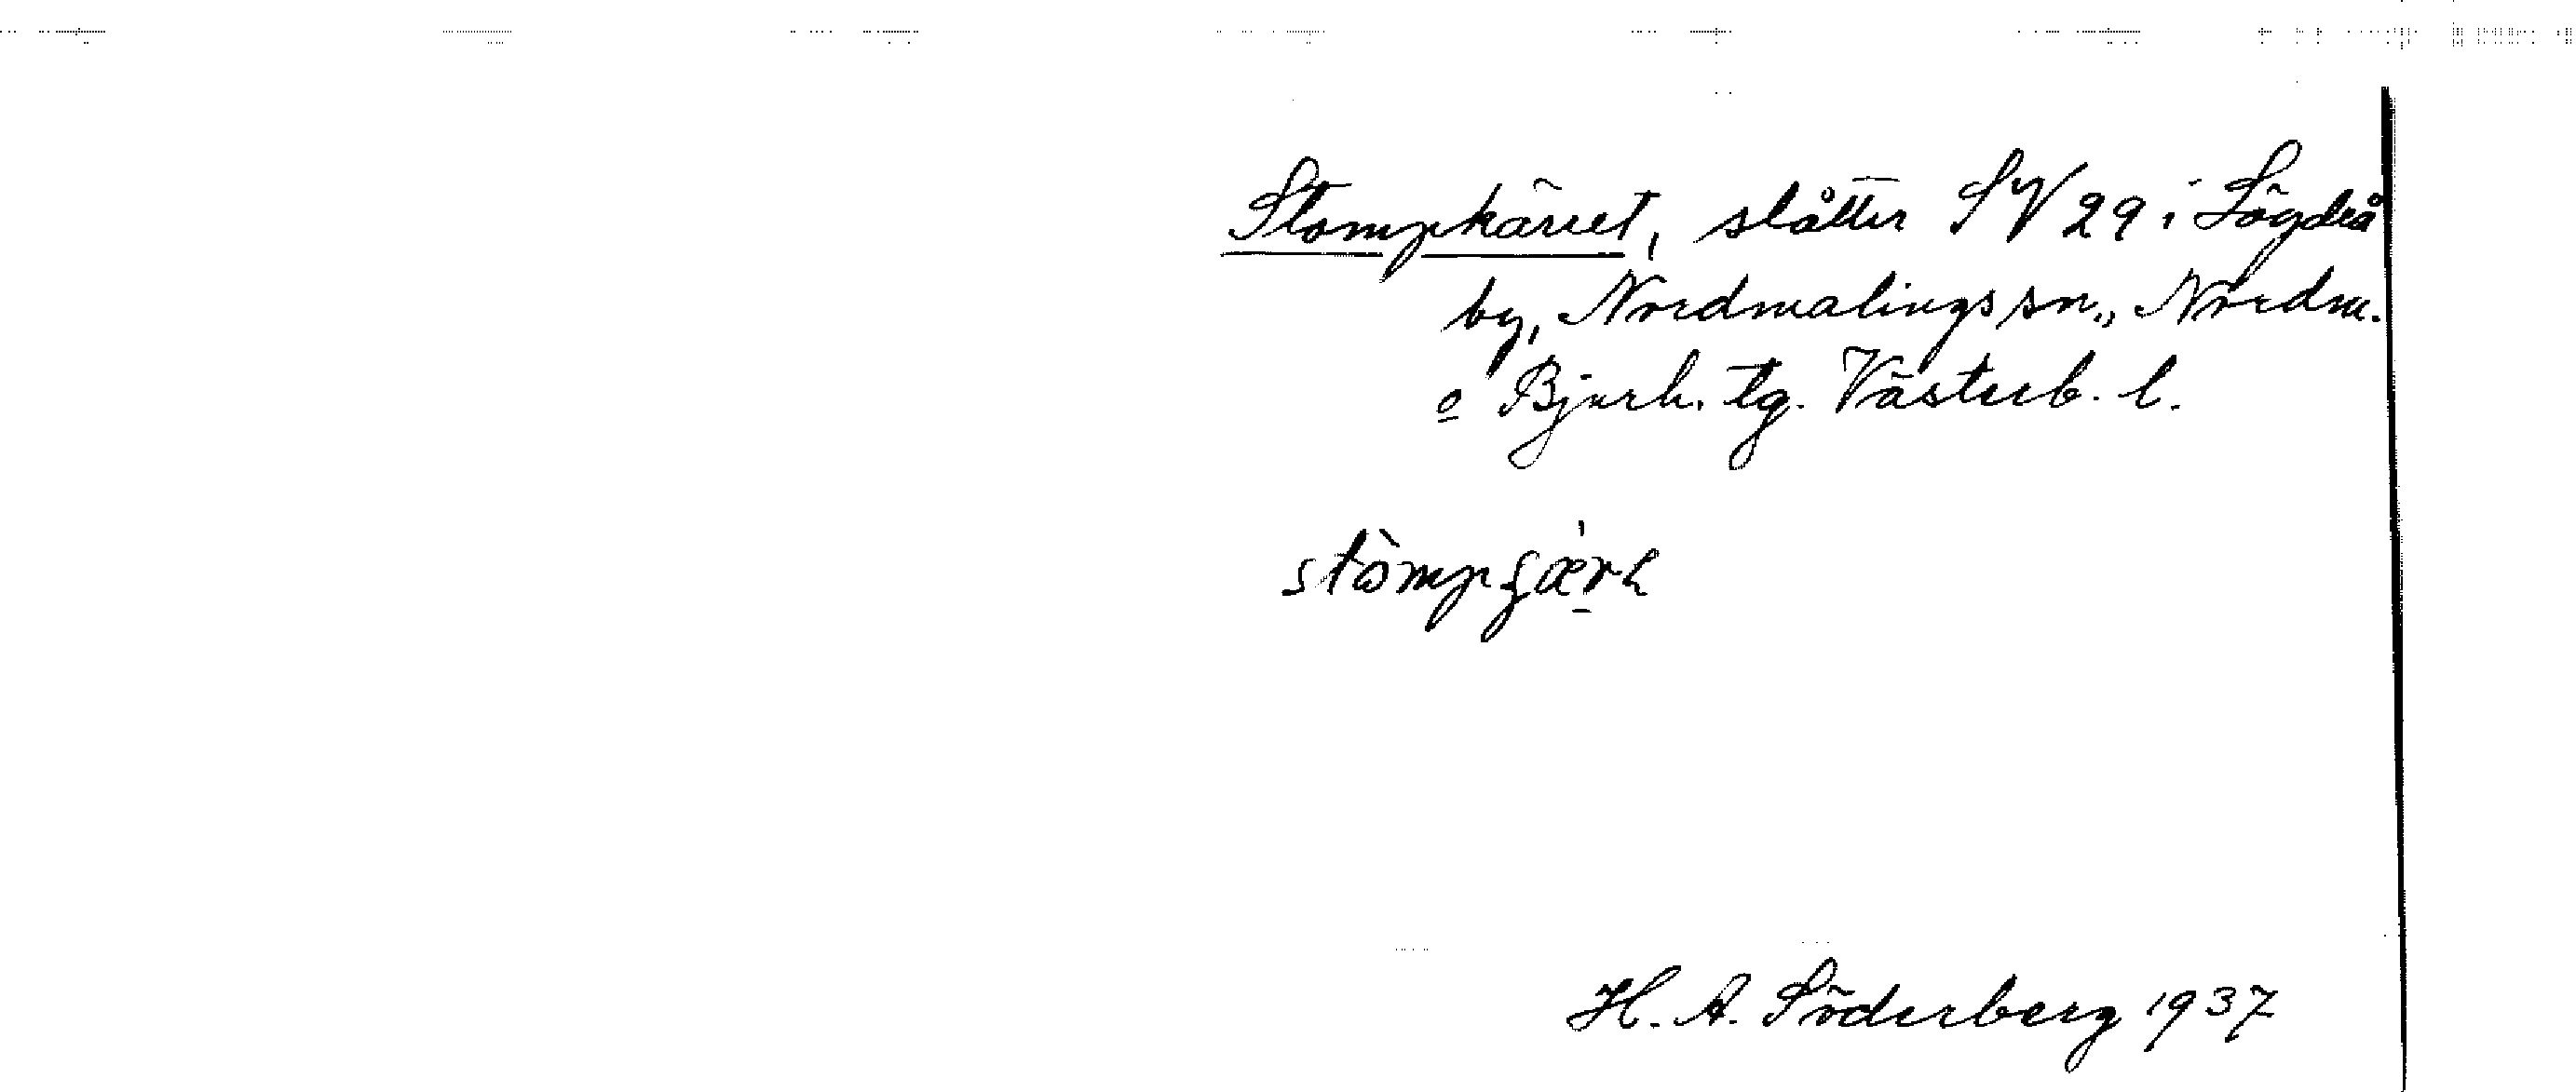 Stompkärret, slåtter SV 29 i Lögdeå
by, Nordmalings sn., Nordm.
o Bjurh. tg. Västerb. l.
H. A. Söderberg 1937